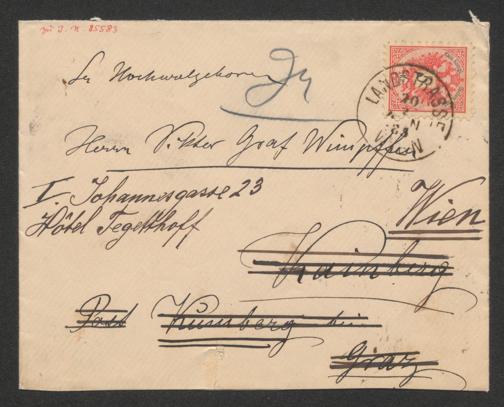 zu I. N. 85583
Sr Hochwolgeboren
LANDSTRASSE
WIEN
Herrn Viktor Graf Wimpffen
I. Johannesgasse 23
Hôtel Tegetthoff
Wien
Kainberg
Post Kumberg bei
Graz